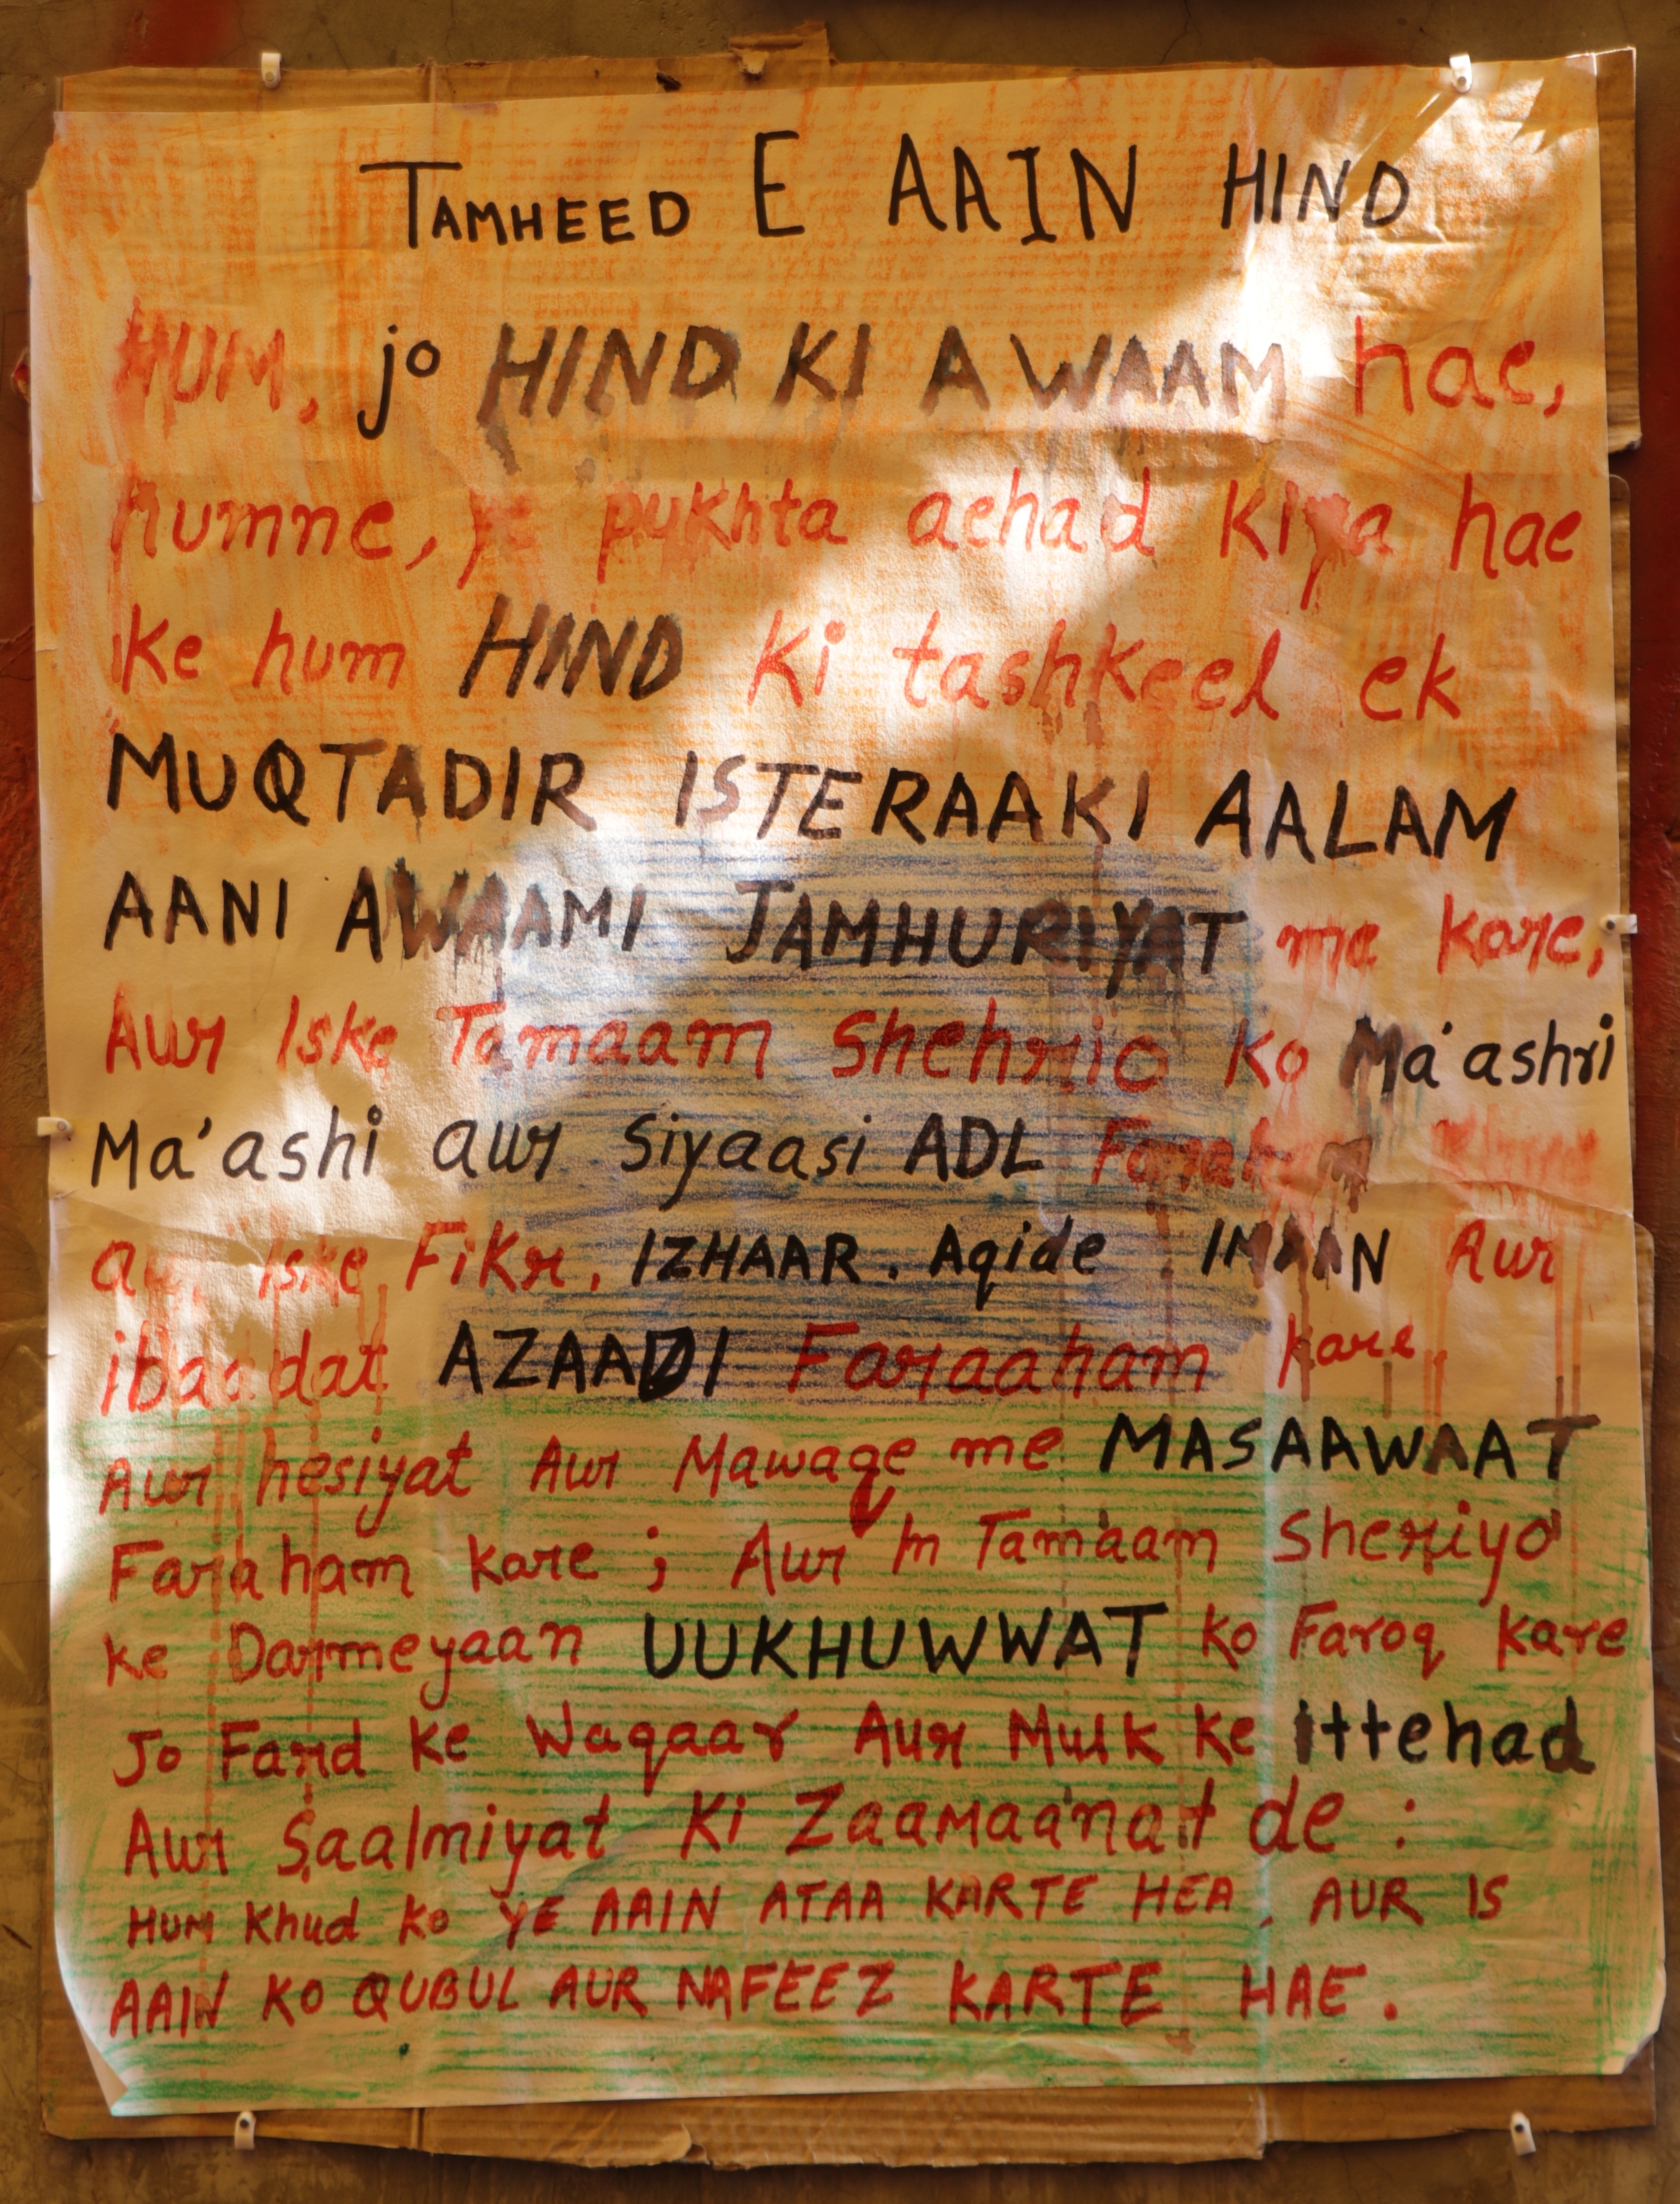 TAMHEED E AAIN HIND
HUM, jo HIND KI AWAAM hae,
humne, ye pukhta aehad kiya hae
ke hum HIND ki tashkeel ek
MUQTADIR ISTERAAKI AALAM
AANI AWAAMI JAMHURIYAT me kare,
Aur Iske Tamaam Shehrio ko Ma'ashri
Ma'ashi aur Siyaasi ADL
aur iske Fikr, IZHAAR, Aqide, IMAAN Aur
ibaadat AZAADI Faraaham kare
Aur hesiyat Aur Mawaqe me MASAAWAAT
Faraham kare ; Aur In Tamaam Sheriyo
ke Darmeyaan UUKHUWWAT ko Faroq kare
Jo Fard ke Waqaar Aur Mulk ke ittehad
Aur Saalmiyat Ki Zaamaanat de :
HUM Khud ko YE AAIN ATAA KARTE HEA, AUR IS
AAIN KO QUBUL AUR NAFEEZ KARTE HAE.